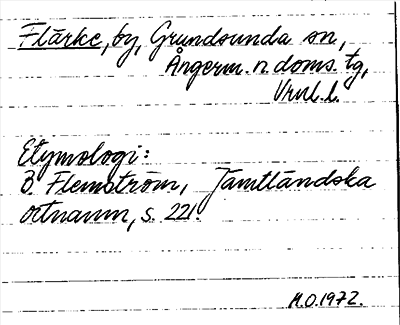 Flärke, by, Grundsunda sn,
Ångerm. n. doms. tg,
Vrml. l.
Etymologi:
B. Flemström, Jämtländska
ortnamn, s. 221.
M.O. 1972.